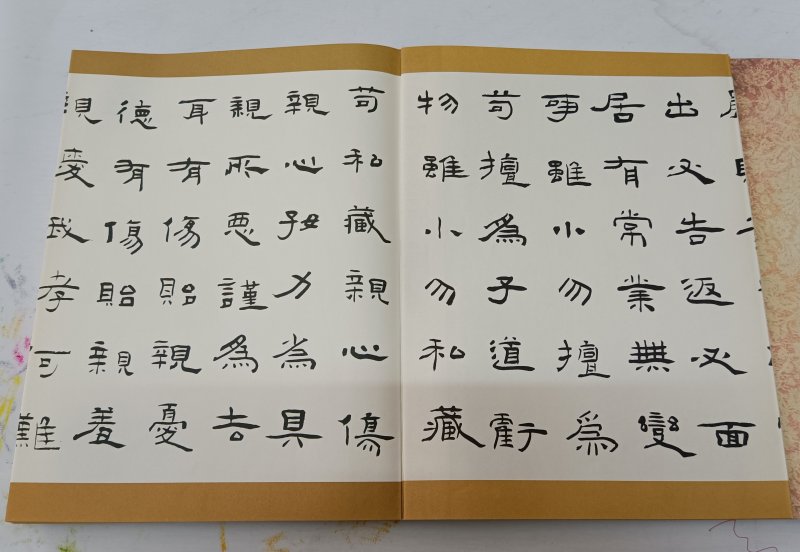 出必告返必面
居有常業無變
事雖小勿擅為
苟擅為子道虧
物雖小勿私藏
苟私藏親心傷
親心好力為具
親所惡謹為去
耳有傷貽親憂
德有傷貽親羞
親愛我孝何難